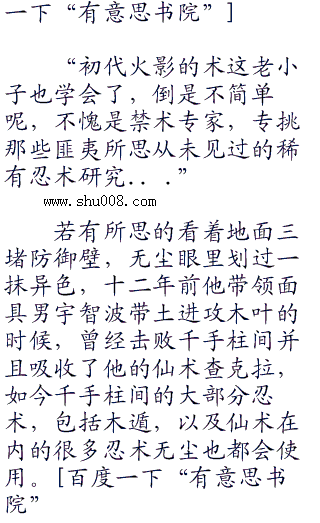 一下“有意思书院”]
“初代火影的术这老小
子也学会了，倒是不简单
呢，不愧是禁术专家，专挑
那些匪夷所思从未见过的稀
有忍术研究...”
www.shu008.com
若有所思的看着地面三
堵防御壁，无尘眼里划过一
抹异色，十二年前他带领面
具男宇智波带土进攻木叶的
时候，曾经击败千手柱间并
且吸收了他的仙术查克拉，
如今千手柱间的大部分忍
术，包括木遁，以及仙术在
内的很多忍术无尘也都会使
用。[百度一下“有意思书
院”